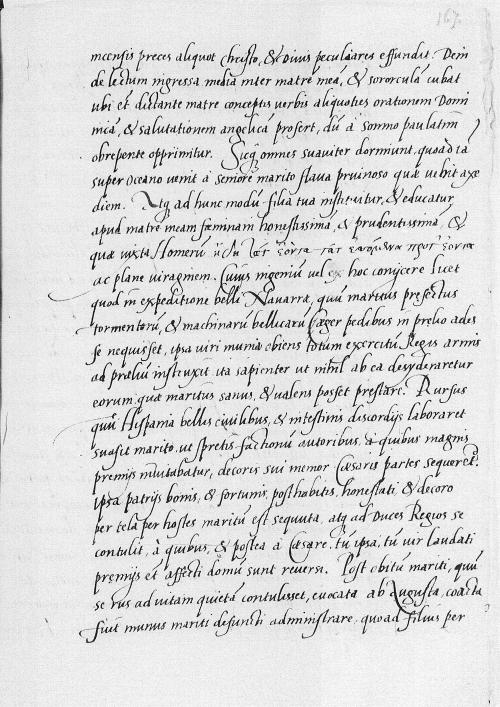 167.
mcensis preces aliquot christo, & Diuis peculiares effundit. Dein
de lectum ingressa media inter matrē meā, & sororculā cubat
ubi et dictante matre conceptis verbis aliquoties orationem Domi
nicā, & salutationem angelicā profert, dū à somno paulatim
obrepente opprimitur. Sicq; omnes suauiter dormiunt, quoad iā
super Oceano venit à seniore marito flaua pruinoso quæ vehit axe
diem. Atq; ad hunc modū filia tua instituitur, & educatur
apud matrē meam fæminam honestissimā, & prudentissimā, &
quæ iuxta Homerū
ac plane viraginem. Cuius ingeniū uel ex hoc conijcere licet
quod in expeditione belli Nauarra, quū maritus præfectus
tormentorū, & machinarū bellicarū Æger pedibus in prelio ades
se nequisset, ipsa viri munia obiens totum exercitū Regis armis
ad præliū instruxit ita sapienter ut nihil ab ea desyderaretur
eorum quæ maritus sanus, & ualens posset prestare. Rursus
quū Hispania bellis ciuilibus, & intestinis discordijs laboraret
suasit marito ut spretis factionū autoribus, à quibus magnis
premijs inuitabatur, decoris sui memor Cæsaris partes sequeret.
ipsa patrijs bonis, & fortunis, posthabitis, honestati, & decoro
per tela per hostes maritū est sequuta, atq; ad Duces Regios se
contulit, à quibus, & postea à Cæsare, tū ipsa, tū uir laudati
premijs et affecti domū sunt reuersi. Post obitū mariti, quū
se rus ad uitam quietā contulisset, euocata ab Augusta, coacta
fuit munus mariti defuncti administrare, quoad filius per